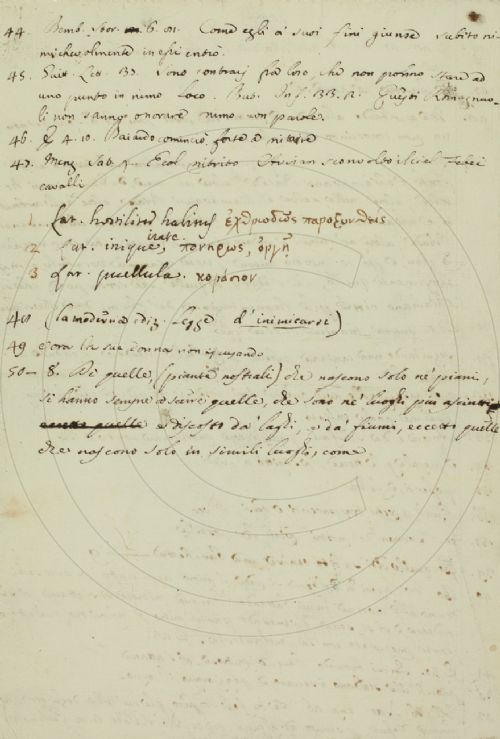 44. Bemb. Stor. 6. 81. Come egli a' suoi fini giunse subito ni-
michevolmente in essi entrò.
45. Guitt. Lett. Sono contrarj fra loro, che non possino stare ad
uno punto in nimo loco. But. Inf. Questi Romagnuo-
li non sanno onorare nimo con parole.
46. 4. 10. Baiardo cominciò forte a nitrire
47. Menz. Sat. Ecol nitrito
cavalli
1 Lat. hostiliter ἐχθρωδῶς παροξυνθείς
2 Lat. inique, irate, πονηρως, ὀργῇ
3 Lat. puellula. κοράσιον
48 (la moderna ediz. legge d'inimicarsi)
49 e ora la sua donna non
50 – 8. Di quelle, (piante nostrali) che nascono solo ne' piani,
si hanno sempre a scire quelle, che sono ne' luoghi più asciutti
quelle e discosto da laghi, e da' fiumi, eccetto quelle
che nascono solo in simili luoghi, come